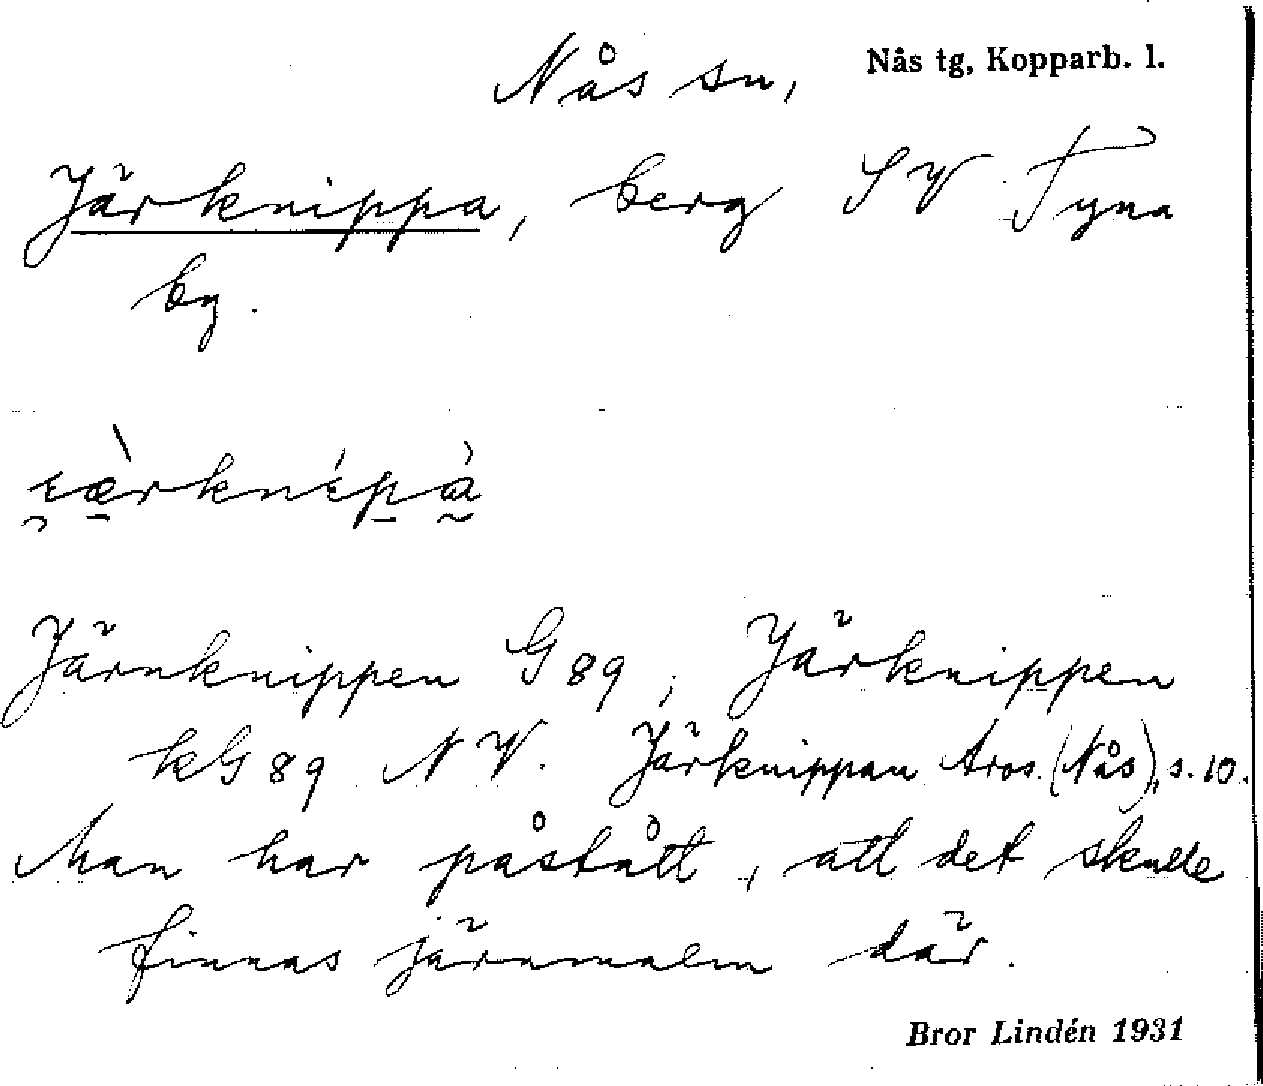 Nås sn, Nås tg, Kopparb. l.
Järknippa, berg SV Tyna
by.
Järnknippen G 89, Järknippen
kG 89 NV. Järknippan Aros. (Nås), s. 10.
Man har påstått, att det skulle
finnas järnmalm där.
Bror Lindén 1931